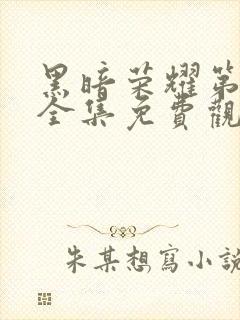 黑暗荣耀第
全集免費觀
朱某想寫小說